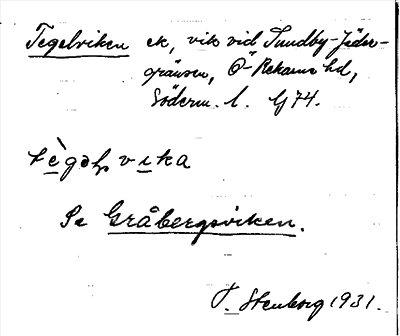 Tegelviken ek, vik vid Sundby-Jäder-
gränsen, Ö-Rekarne hd,
Söderm. l. Gj 74.
tègəlvika
Se Gråbergsviken.
T. Stenborg 1931.